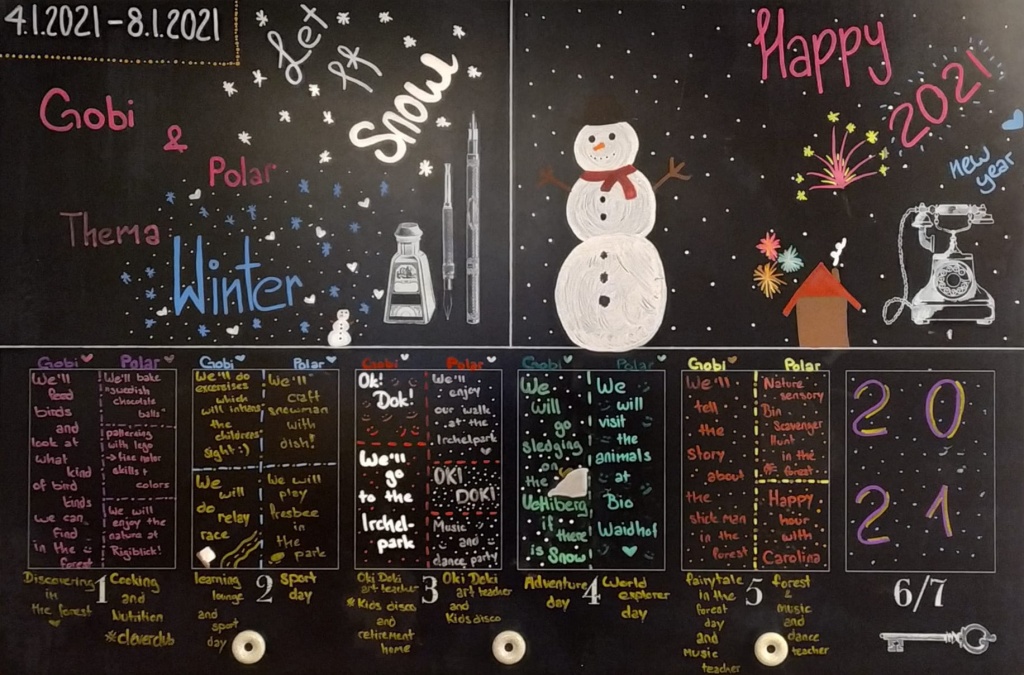 4.1.2021 - 8.1.2021
Let
It
Snow
Gobi
&
Polar
Thema
Winter
Happy
2021
new
year
Gobi Polar
We'll
feed
birds
and
look at
what
kind
of bird
kinds
we can
find
in the
forest
We'll bake
swedish
chocolate
balls
patterning
with lego
→ fine motor
skills +
colors
We will
enjoy the
nature at
Rigiblick!
Gobi Polar
We'll do
excersises
which
will intens
the
childrens
sight :)
We
will
do relay
race
We'll
craft
snowman
with
dish!
We will
play
Fresbee
in
the
park
Gobi Polar
Ok!
Dok!
We'll
go
to the
Irchel-
park
We'll
enjoy
our walk
at the
Irchelpark
OKI
DOKI
Music
and
dance party
Gobi Polar
We
will
go
sledging
on
the
Uetliberg
if
there
is Snow
We
will
visit
the
animals
at
Bio
Waidhof
Gobi Polar
We'll
tell
the
story
about
the
stick man
in the
forest
Nature
sensory
Bin
Scavenger
Hunt
in the
forest
Happy
hour
with
Carolina
2 0
2 1
Discovering
in
the forest
1
Cooking
and
Nutrition
*cleverclub
learning
lounge
and
sport
day
2
sport
day
Oki Doki
art teacher
*Kids disco
and
retirement
home
3
Oki Doki
art teacher
and
Kids disco
Adventure
day
4
World
explorer
day
fairytale
in the
forest
day
and
Music
teacher
5
forest
&
music
and
dance
teacher
6/7